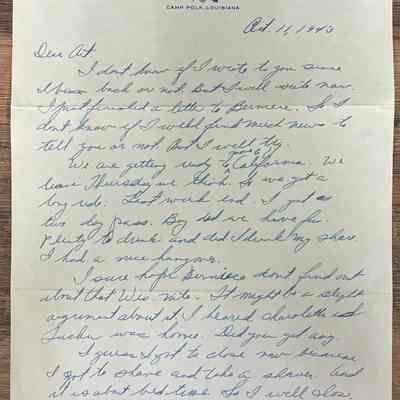 CAMP POLK, LOUISIANA
Oct. 11, 1943
Dear Art
I dont know if I wrote to you since
I been back or not. But I will write now.
I just finished a letter to Berniece. So I
dont know if I will find much news to
tell you or not. But I will try.
We are getting ready to go to California. We
leave Thursday we think. So we got a
long ride. Last week end I got a
two day pass. Boy did we have fun.
Plenty to drink and did I drink my share.
I had a nice hangover.
I sure hope Berniece dont find out
about that Wis. nite. It might be a slight
argument about it. I heared
was home. Did you get any
I guess I got to close now because
I got to shave and take a shower. And
it is about bed time. So I will close